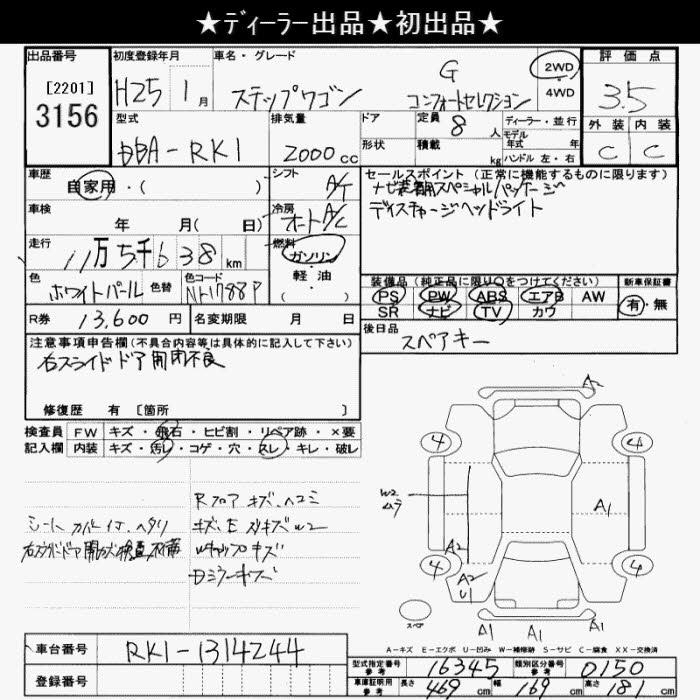 ★ディーラー出品★初出品★
出品番号 初度登録年月 車名・グレード 評価点
[2201]
3156
H25 1月 ステップワゴン G コンフォートセレクション 2WD 4WD 3.5
型式 排気量 ドア 定員 8人 ディーラー・並行 外装 内装
DBA-RK1 2000cc 形状 積載 kg モデル年式 年 ハンドル 左・右 C C
車歴 シフト セールスポイント(正常に機能するものに限ります)
自家用・( ) A/T ナビ装着用スペシャルパッケージ
車検 年 月( 日) 冷房 オートA/C ディスチャージヘッドライト
走行 11万5千638km 燃料 ガソリン・軽油・( )
装備品(純正品に限り○をつけてください) 新車保証書
色 ホワイトパール 色替 色コード NH788P
PS PW ABS エアB AW 有・無
SR ナビ TV カワ
R券 13,600円 名変期限 月 日
後日品 スペアキー
注意事項申告欄(不具合内容等は具体的に記入して下さい)
右スライドドア開閉不良
修復歴 有 [箇所 ]
検査員 FW キズ・飛石・ヒビ割・リペア跡・×要
記入欄 内装 キズ・汚レ・コゲ・穴・スレ・キレ・破レ
Rフロア キズ、ヘコミ
シートカバー付、ヘタリ
キズ、E
W2
キャップキズ
右スライドドア開
Dミラーキズ
A2
4 4
W2 ムラ
A1
A2
4 4
A2 U1
スペア
A1 A1
A1
A-キズ E-エクボ U-凹み W-補修跡 S-サビ C-腐食 XX-交換済
車台番号 RK1-1314244
型式指定番号 参考 16345 類別区分番号 参考 0150
登録番号
車庫証明用 参考 長さ 469cm 幅 169cm 高さ 181cm